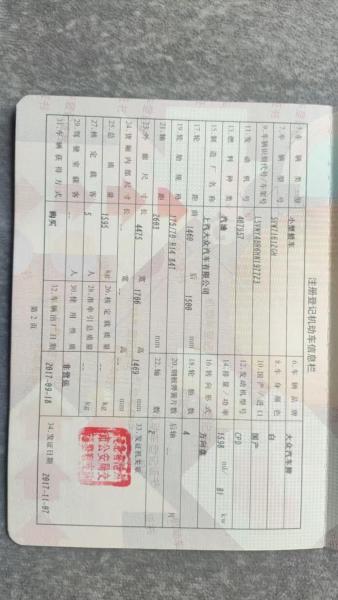 注册登记机动车信息栏
5.车辆类型 小型轿车 6.车辆品牌 大众汽车牌
7.车辆型号 8.车身颜色 白
9.车辆识别代号/车架号 10.国产/进口 国产
11.发动机号 407957 12.发动机型号 CPD
13.燃料种类 汽油 14.排量/功率 1598 ml/ 81 kw
15.制造厂名称 上汽大众汽车有限公司 16.转向形式 方向盘
17.轮距 前 1460 后 1500 mm 18.轮胎数 4
19.轮胎规格 175/70 R14 84T 20.钢板弹簧片数 后轴 片
21.轴距 2603 mm 22.轴数 2
23.外廓尺寸 长 4475 宽 1706 高 1469 mm
24.货厢内部尺寸 长 宽 高 mm
25.总质量 1595 kg 26.核定载质量 kg
27.核定载客 5 人 28.准牵引总质量 kg
29.驾驶室载客 人 30.使用性质 非营运
31.车辆获得方式 购买 32.车辆出厂日期 2017-09-18
33.发证机关章
34.发证日期 2017-11-07
第2页